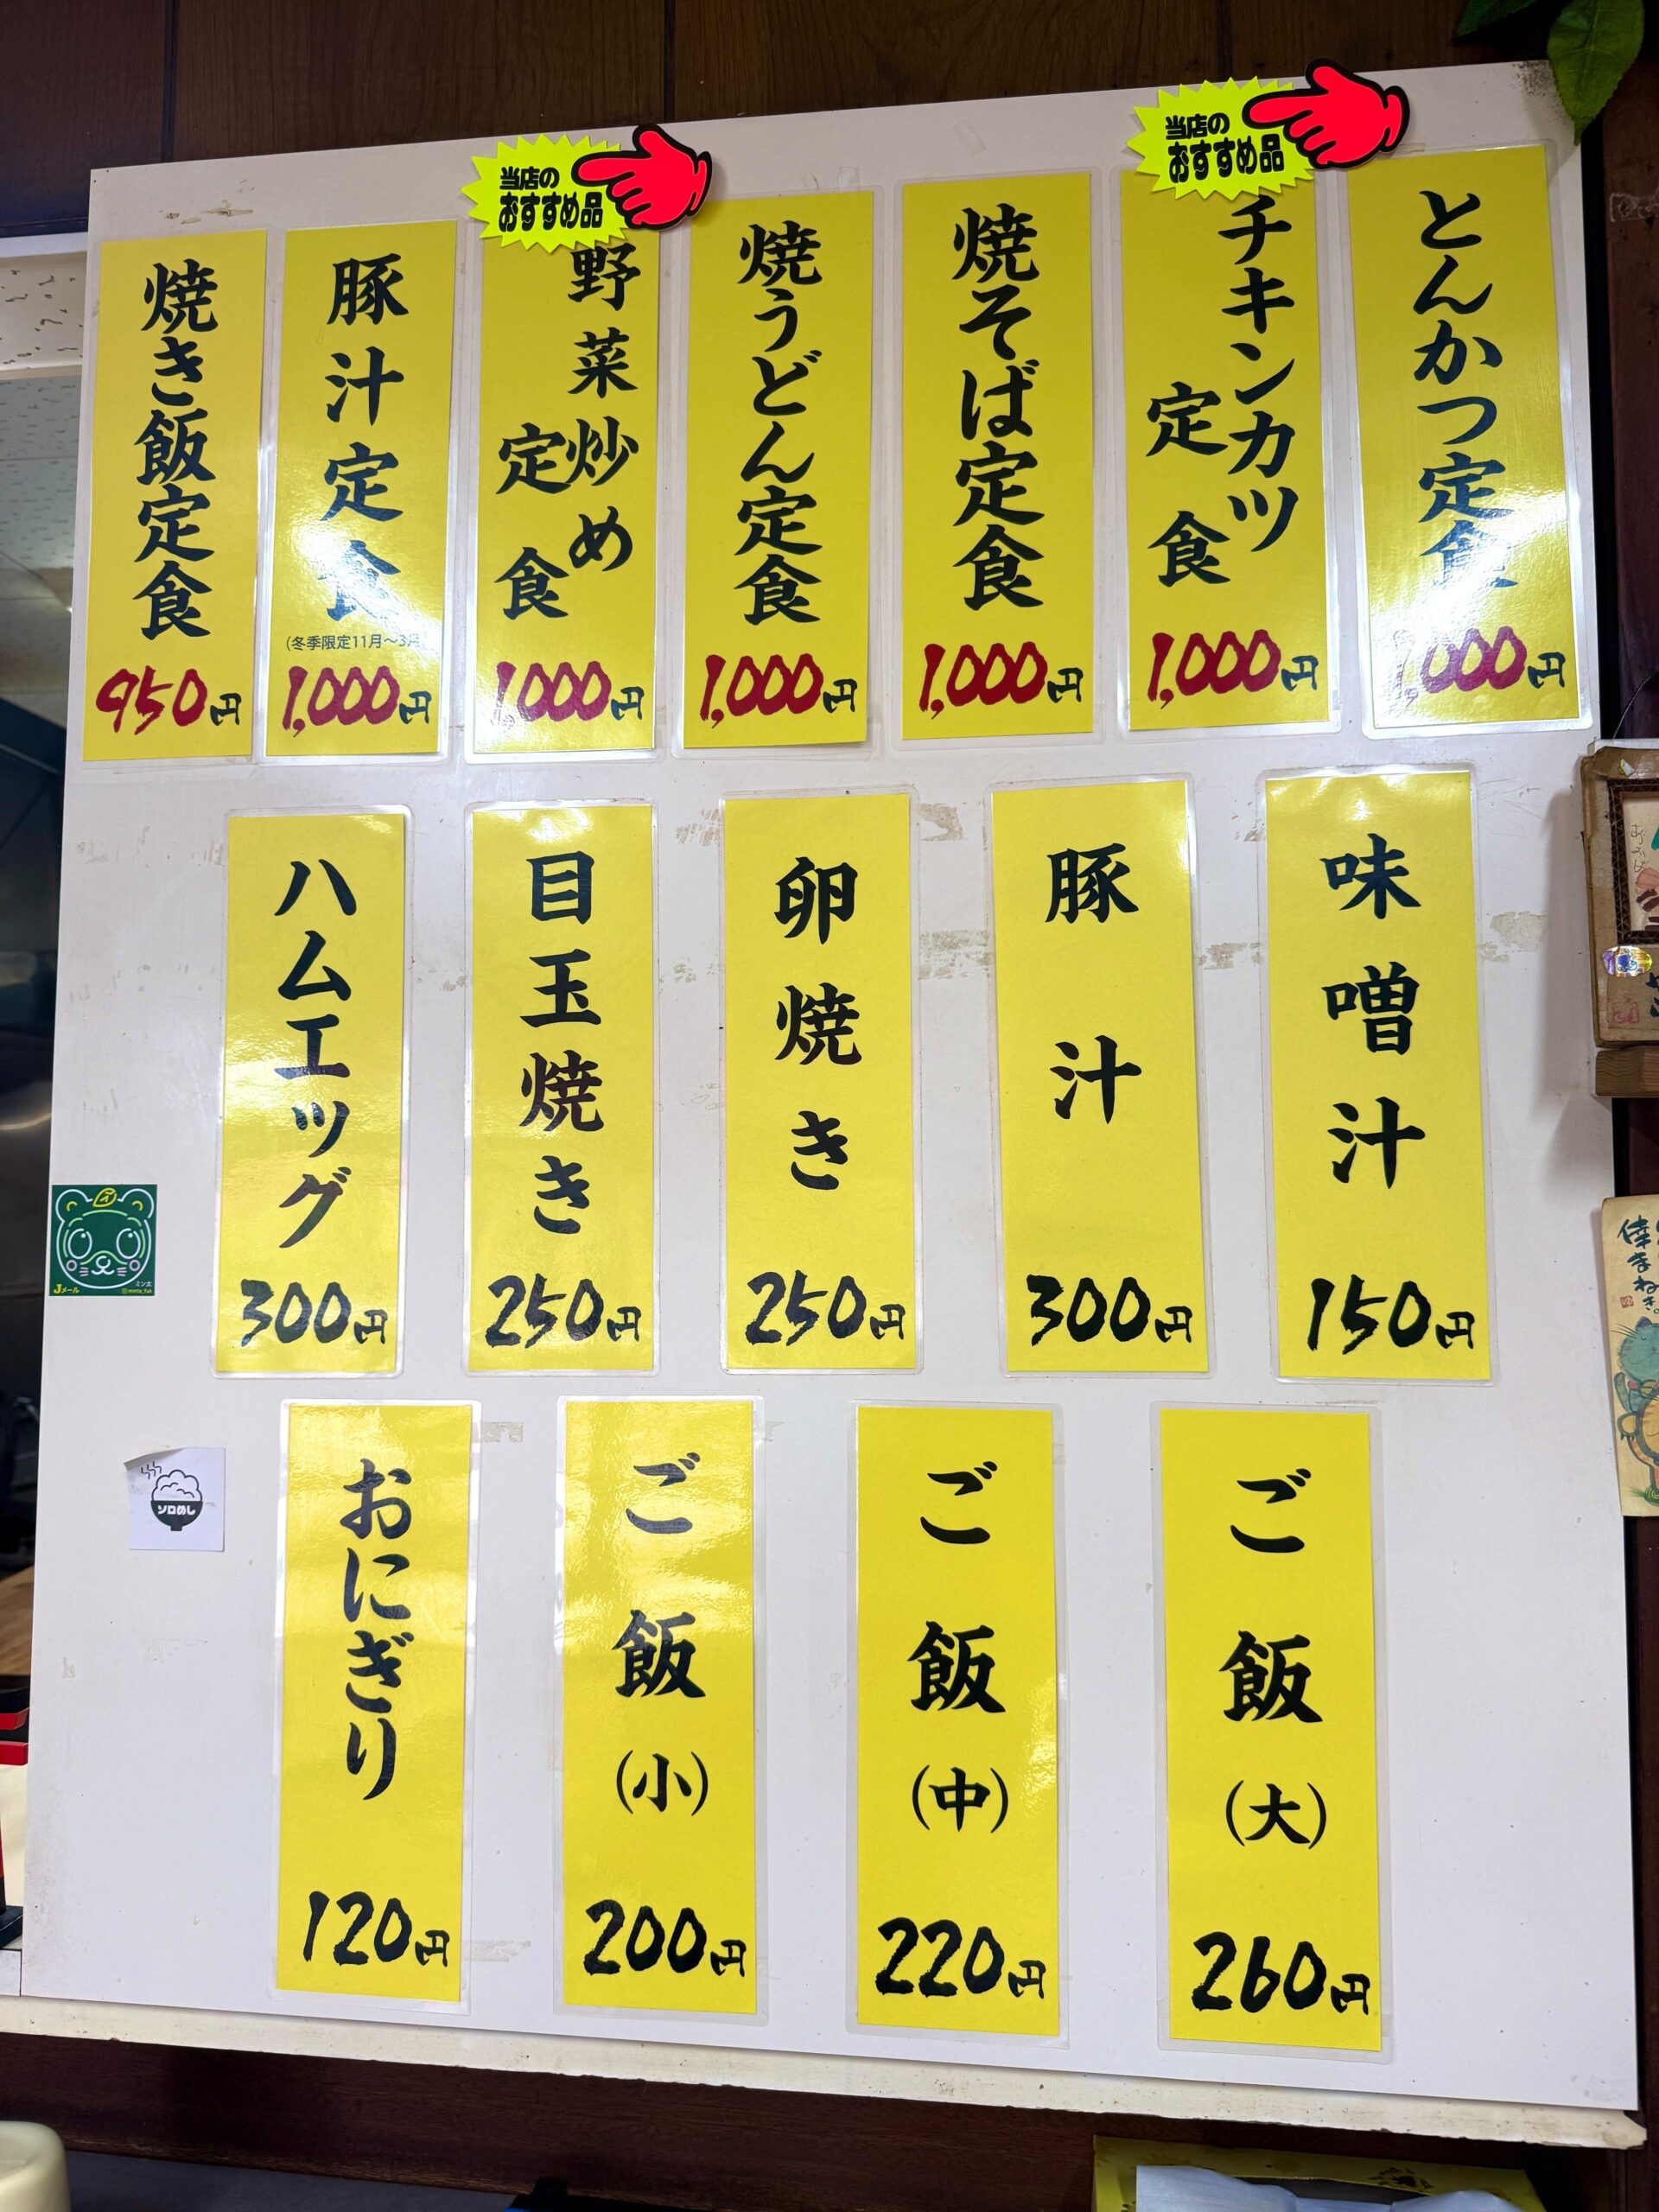 当店の
おすすめ品
当店の
おすすめ品
とんかつ定食
1,000円
チキンカツ
定食
1,000円
焼そば定食
1,000円
焼うどん定食
1,000円
野菜炒め
定食
1,000円
豚汁定食
(冬季限定11月〜3月)
1,000円
焼き飯定食
950円
味噌汁
150円
豚汁
300円
卵焼き
250円
目玉焼き
250円
ハムエッグ
300円
ご飯
(大)
260円
ご飯
(中)
220円
ご飯
(小)
200円
おにぎり
120円
Jメール
ミン太
@minta_fuk
ソロめし
倖まねき。